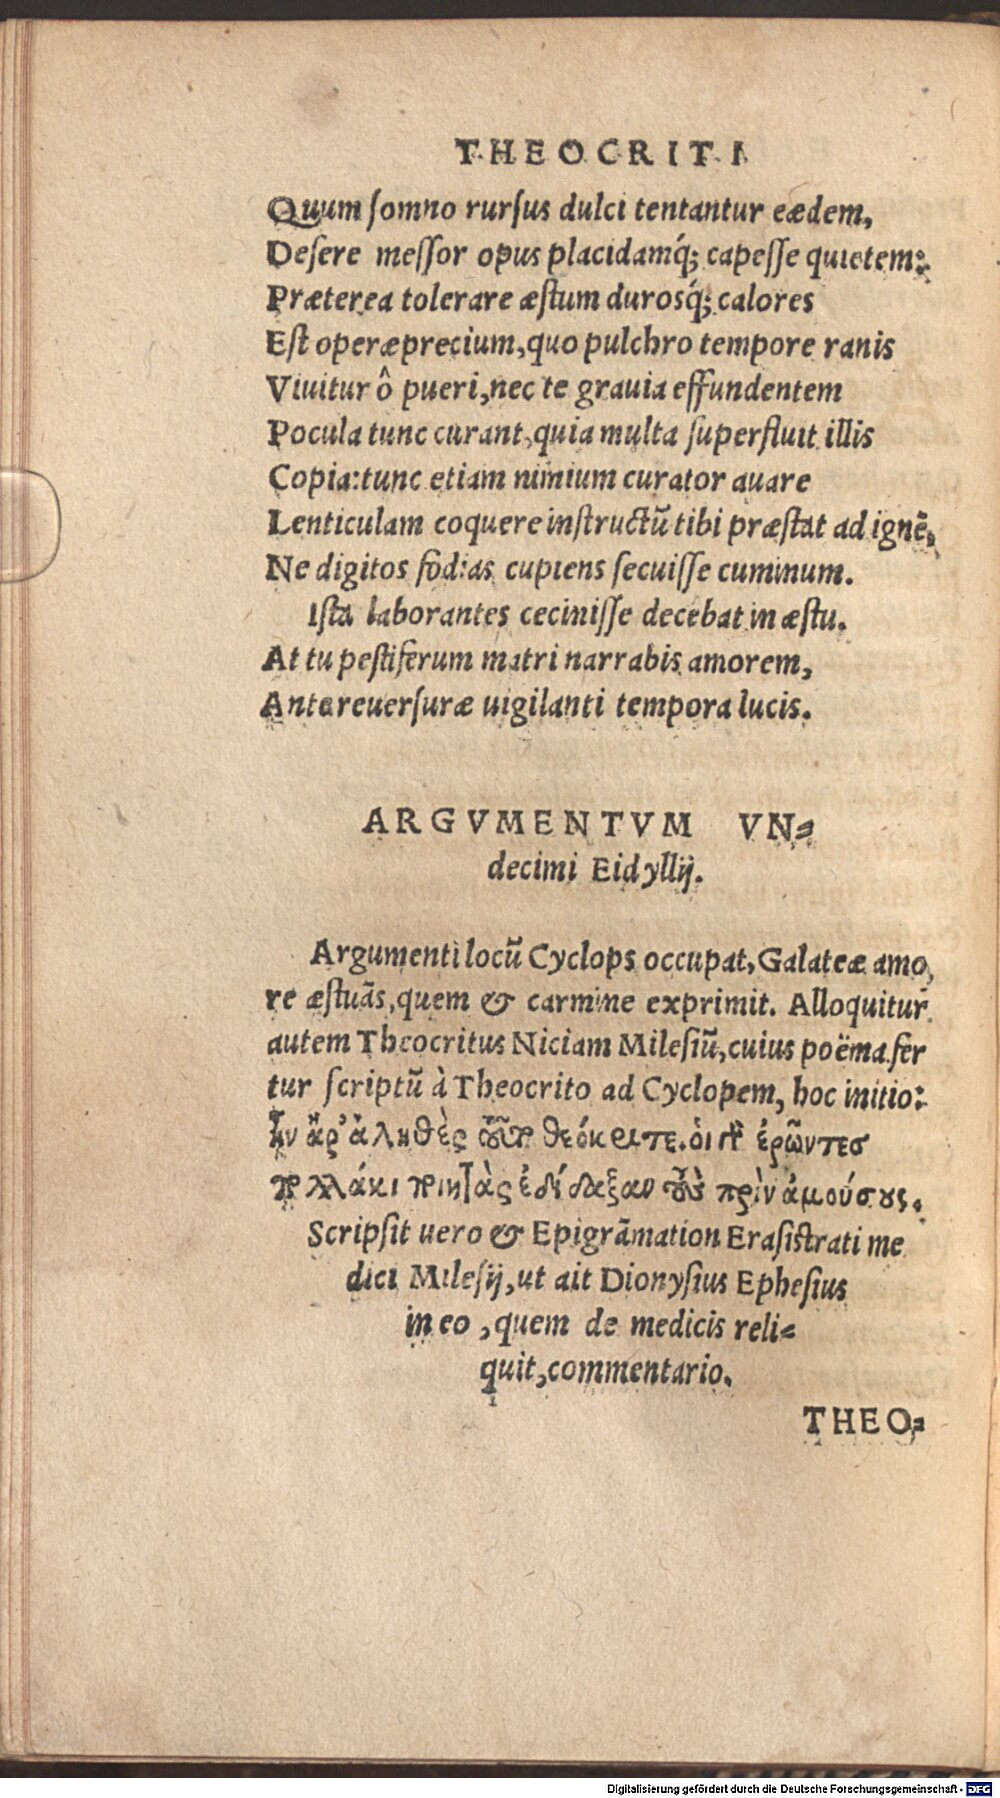 THEOCRITI
Quum ſomno rurſus dulci tentantur eædem,
Deſere meſſor opus placidamq́; capeſſe quietem:
Præterea tolerare æſtum durosq́; calores
Eſt operæprecium, quo pulchro tempore ranis
Viuitur ô pueri, nec te grauia effundentem
Pocula tunc curant, quia multa ſuperfluit illis
Copia: tunc etiam nimium curator auare
Lenticulam coquere inſtructũ tibi præſtat ad ignẽ,
Ne digitos fodias cupiens ſecuiſſe cuminum.
Iſta laborantes ceciniſſe decebat in æſtu.
At tu peſtiferum matri narrabis amorem,
Ante reuerſuræ uigilanti tempora lucis.
ARGVMENTVM VN-
decimi Eidyllij.
Argumenti locũ Cyclops occupat, Galateæ amo
re æſtuãs, quem & carmine exprimit. Alloquitur
autem Theocritus Niciam Mileſiũ, cuius poëma fer
tur ſcriptũ à Theocrito ad Cyclopem, hoc initio:
ἦν ἄρ' ἀληθὲς τοῦτο θεόκριτε. οἱ γὰρ ἐρῶντες
πολλάκι ποιητὰς ἐδίδαξαν τοὺς πρὶν ἀμούσους.
Scripſit uero & Epigrãmation Eraſiſtrati me
dici Mileſij, ut ait Dionyſius Epheſius
in eo, quem de medicis reli-
quit, commentario.
THEO-
Digitalisierung gefördert durch die Deutsche Forschungsgemeinschaft - DFG